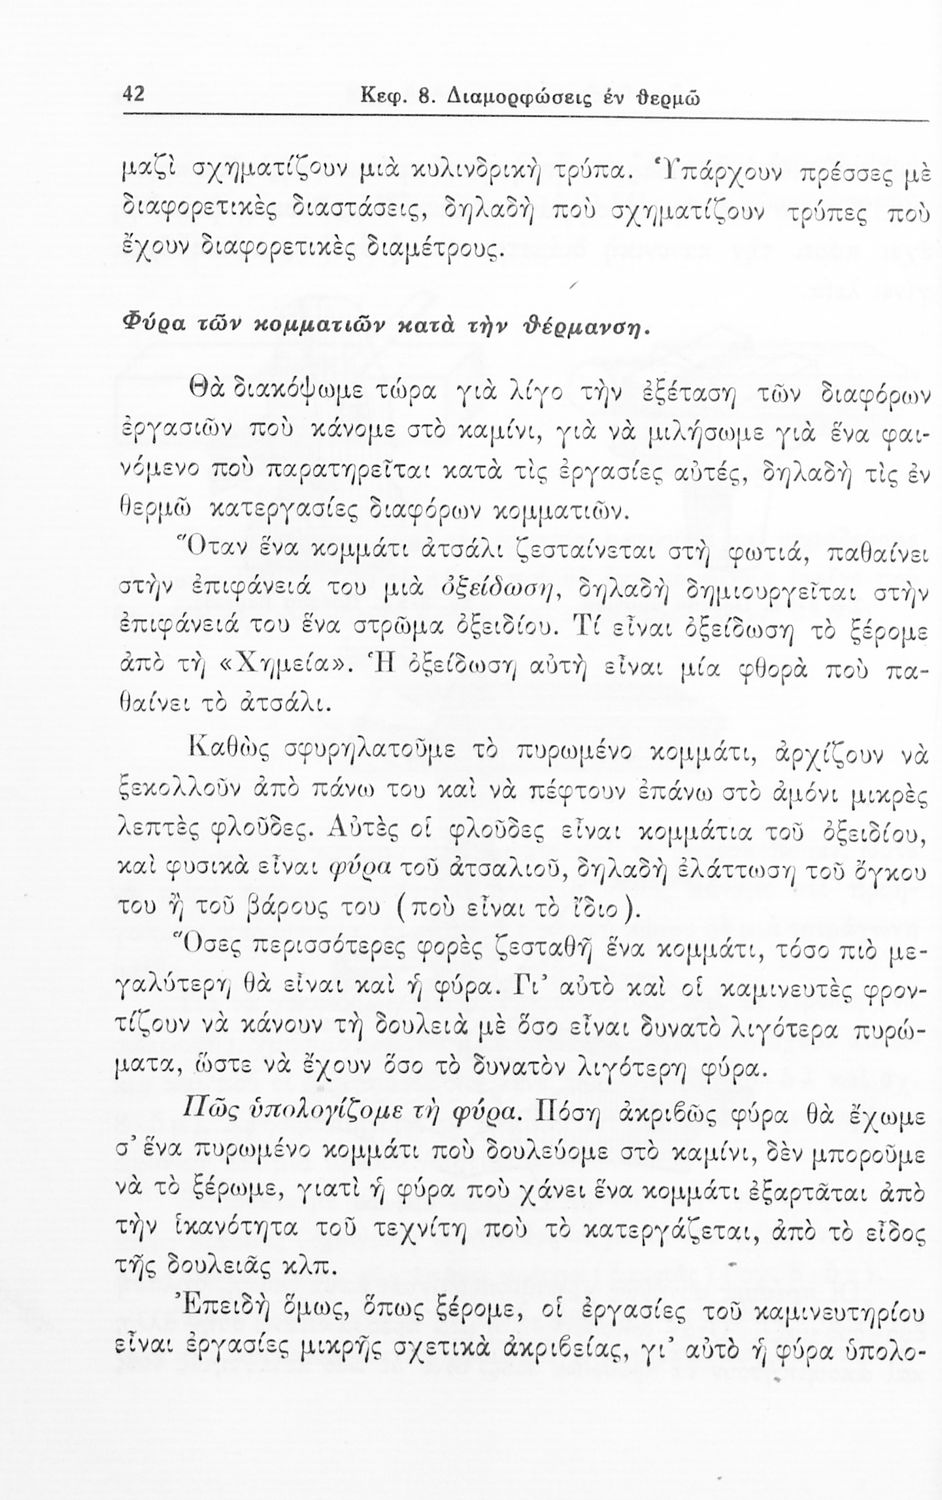 42 Κεφ. 8. Διαμορφώσεις ἐν θερμῶ
μαζὶ σχηματίζουν μιὰ κυλινδρικὴ τρύπα. Ὑπάρχουν πρέσσες μὲ
διαφορετικὲς διαστάσεις, δηλαδὴ ποὺ σχηματίζουν τρύπες ποὺ
ἔχουν διαφορετικὲς διαμέτρους.
Φύρα τῶν κομματιῶν κατὰ τὴν θέρμανση.
Θὰ διακόψωμε τώρα γιὰ λίγο τὴν ἐξέταση τῶν διαφόρων
ἐργασιῶν ποὺ κάνομε στὸ καμίνι, γιὰ νὰ μιλήσωμε γιὰ ἕνα φαι-
νόμενο ποὺ παρατηρεῖται κατὰ τὶς ἐργασίες αὐτές, δηλαδὴ τὶς ἐν
θερμῶ κατεργασίες διαφόρων κομματιῶν.
Ὅταν ἕνα κομμάτι ἀτσάλι ζεσταίνεται στὴ φωτιά, παθαίνει
στὴν ἐπιφάνειά του μιὰ ὀξείδωση, δηλαδὴ δημιουργεῖται στὴν
ἐπιφάνειά του ἕνα στρῶμα ὀξειδίου. Τί εἶναι ὀξείδωση τὸ ξέρομε
ἀπὸ τὴ «Χημεία». Ἡ ὀξείδωση αὐτὴ εἶναι μία φθορὰ ποὺ πα-
θαίνει τὸ ἀτσάλι.
Καθὼς σφυρηλατοῦμε τὸ πυρωμένο κομμάτι, ἀρχίζουν νὰ
ξεκολλοῦν ἀπὸ πάνω του καὶ νὰ πέφτουν ἐπάνω στὸ ἀμόνι μικρὲς
λεπτὲς φλοῦδες. Αὐτὲς οἱ φλοῦδες εἶναι κομμάτια τοῦ ὀξειδίου,
καὶ φυσικὰ εἶναι φύρα τοῦ ἀτσαλιοῦ, δηλαδὴ ἐλάττωση τοῦ ὄγκου
του ἢ τοῦ βάρους του (ποὺ εἶναι τὸ ἴδιο).
Ὅσες περισσότερες φορὲς ζεσταθῆ ἕνα κομμάτι, τόσο πιὸ με-
γαλύτερη θὰ εἶναι καὶ ἡ φύρα. Γι' αὐτὸ καὶ οἱ καμινευτὲς φρον-
τίζουν νὰ κάνουν τὴ δουλειὰ μὲ ὅσο εἶναι δυνατὸ λιγότερα πυρώ-
ματα, ὥστε νὰ ἔχουν ὅσο τὸ δυνατὸν λιγότερη φύρα.
Πῶς ὑπολογίζομε τὴ φύρα. Πόση ἀκριβῶς φύρα θὰ ἔχωμε
σ' ἕνα πυρωμένο κομμάτι ποὺ δουλεύομε στὸ καμίνι, δὲν μποροῦμε
νὰ τὸ ξέρωμε, γιατὶ ἡ φύρα ποὺ χάνει ἕνα κομμάτι ἐξαρτᾶται ἀπὸ
τὴν ἱκανότητα τοῦ τεχνίτη ποὺ τὸ κατεργάζεται, ἀπὸ τὸ εἶδος
τῆς δουλειᾶς κλπ.
Ἐπειδὴ ὅμως, ὅπως ξέρομε, οἱ ἐργασίες τοῦ καμινευτηρίου
εἶναι ἐργασίες μικρῆς σχετικὰ ἀκριβείας, γι' αὐτὸ ἡ φύρα ὑπολο-